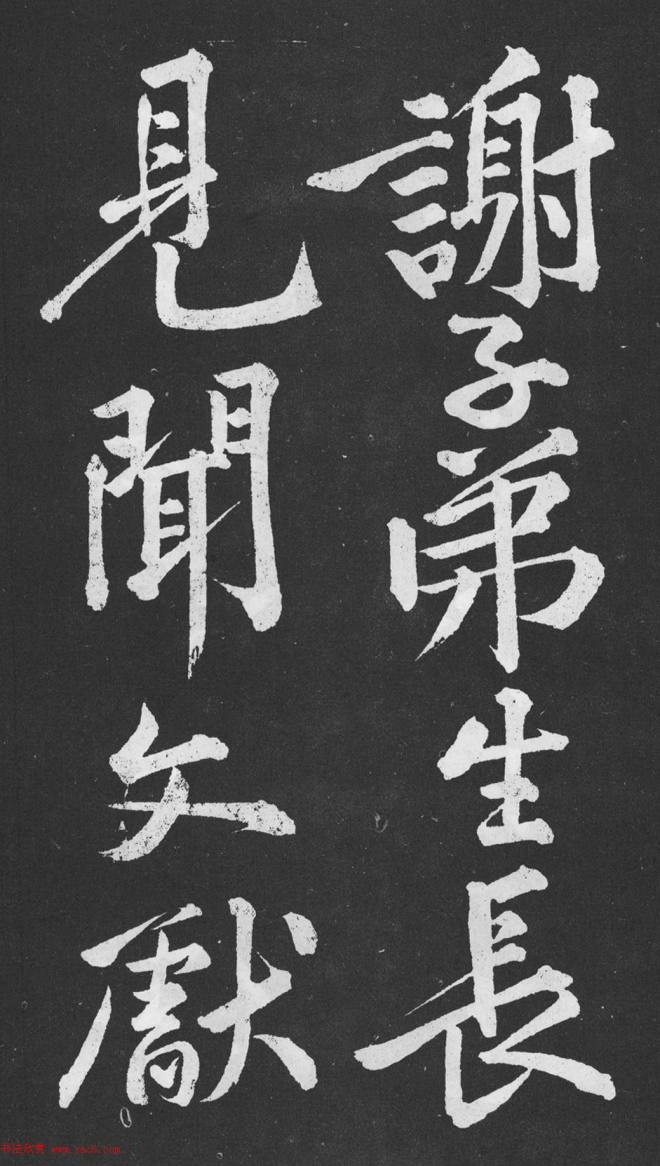 謝子弟生長
見聞文獻
书法欣赏 www.yac8.com